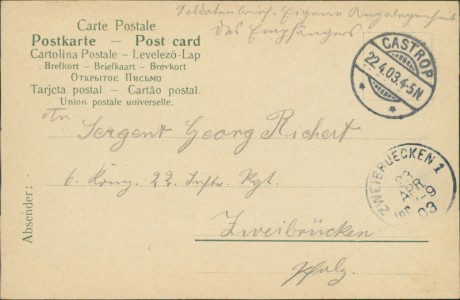 Soldatenbrief. Eigene Angelegenheit
des Empfängers
Carte Postale
Postkarte — Post card
Cartolina Postale – Levelező-Lap
Brefkort – Briefkaart – Brevkort
ОТКРЫТОЕ ПИСЬМО
Tarjeta postal — Cartão postal.
Union postale universelle.
CASTROP
22.4.03.4-5N
An
Sergent Georg Richert
6. Kömg. 22. Inftr. Rgt.
ZWEIBRUECKEN 1
Zweibrücken
Pfalz.
Absender: